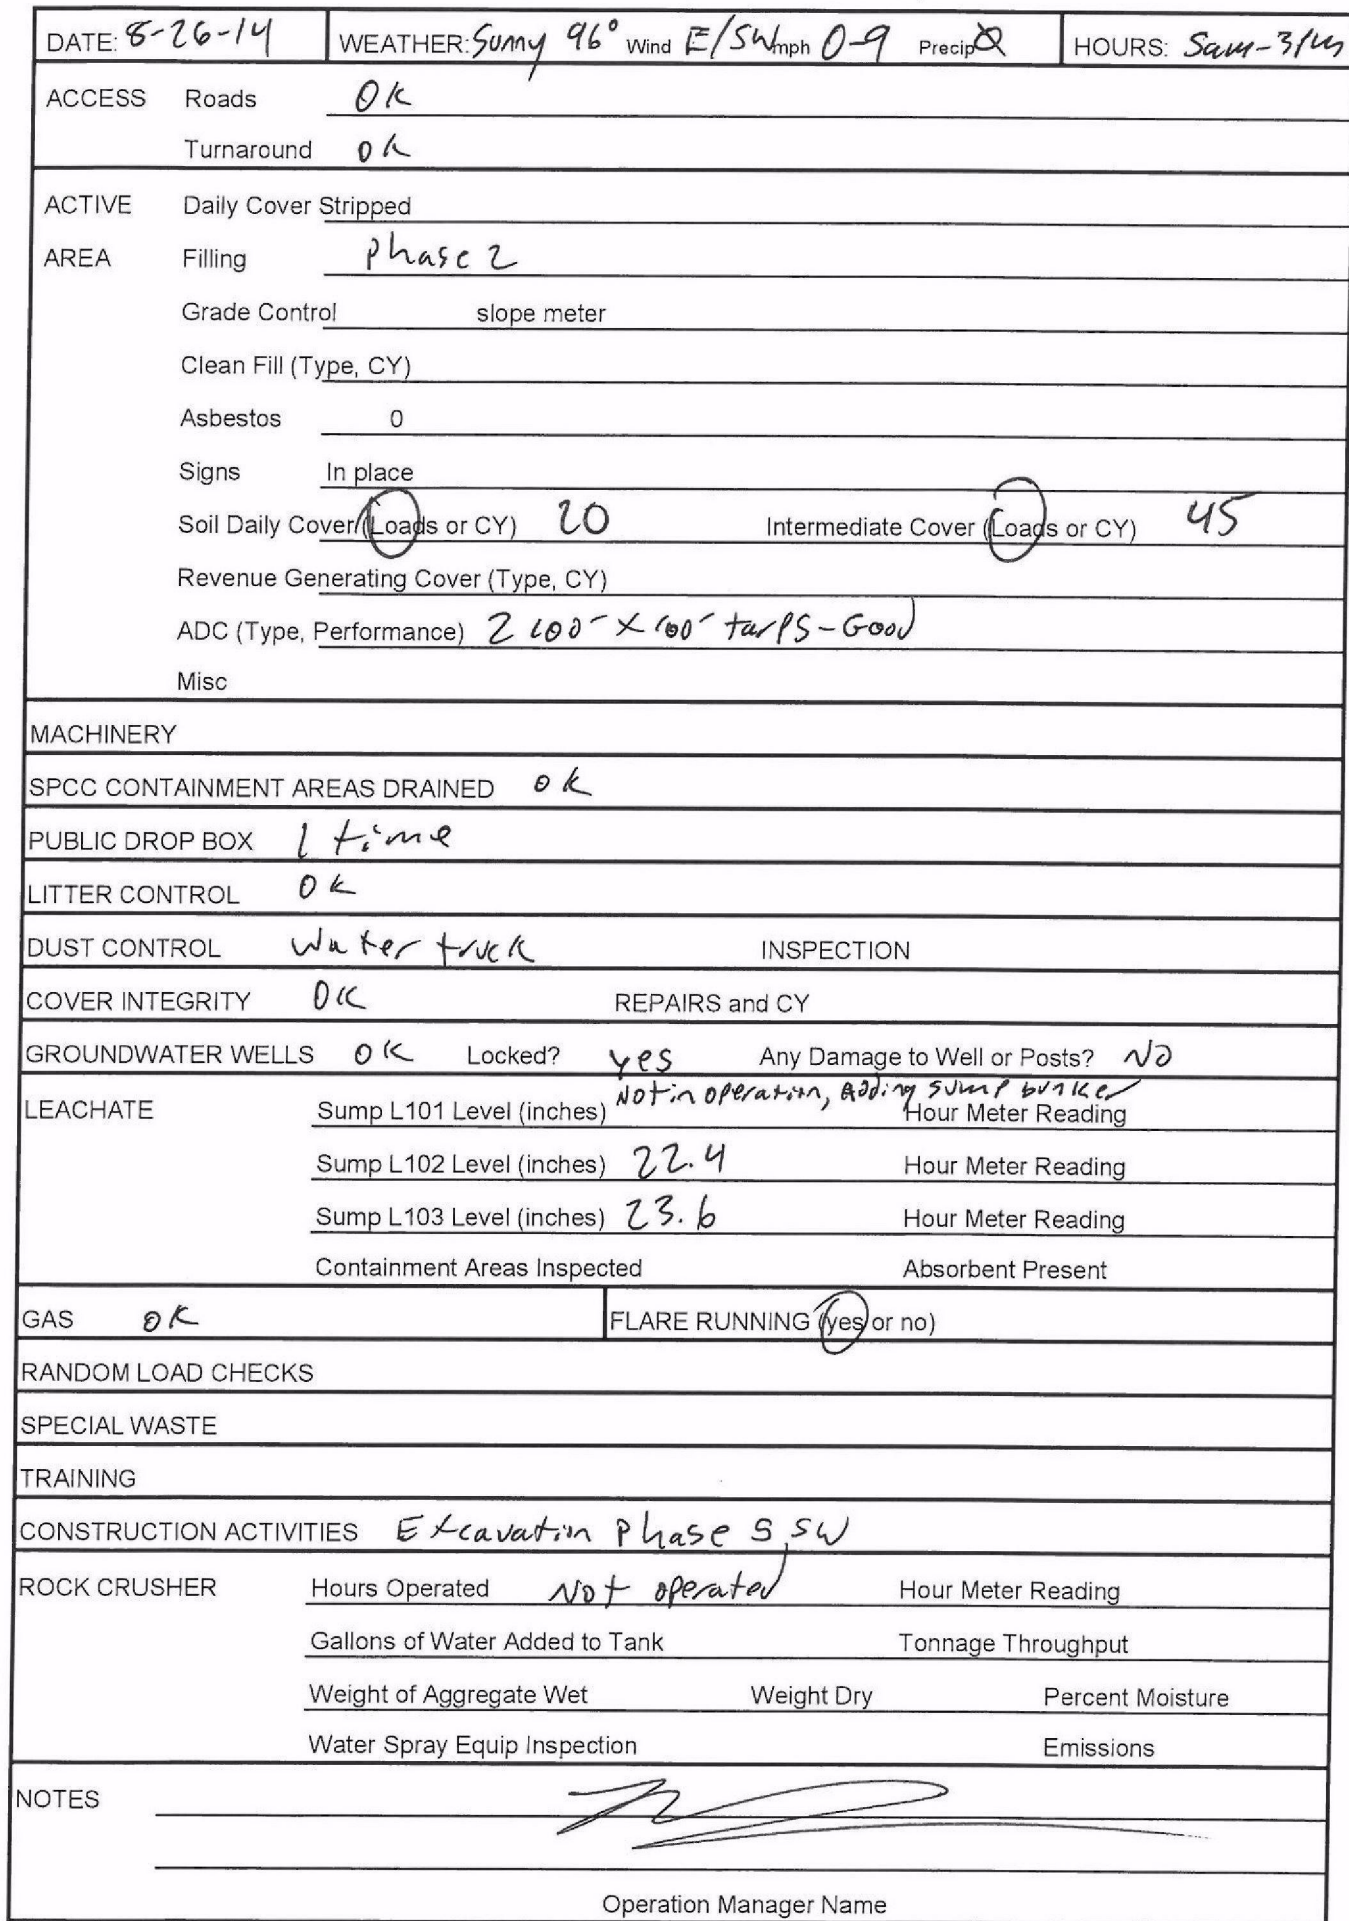 DATE: 8-26-14 WEATHER: Sunny 96° Wind E/SW mph 0-9 Precip Ø HOURS: 5am-3pm
ACCESS Roads OK
Turnaround OK
ACTIVE Daily Cover Stripped
AREA Filling Phase 2
Grade Control slope meter
Clean Fill (Type, CY)
Asbestos 0
Signs In place
Soil Daily Cover (Loads or CY) 20 Intermediate Cover (Loads or CY) 45
Revenue Generating Cover (Type, CY)
ADC (Type, Performance) 2 100' X 100' tarps - Good
Misc
MACHINERY
SPCC CONTAINMENT AREAS DRAINED OK
PUBLIC DROP BOX 1 time
LITTER CONTROL OK
DUST CONTROL Water truck INSPECTION
COVER INTEGRITY OK REPAIRS and CY
GROUNDWATER WELLS OK Locked? yes Any Damage to Well or Posts? NO
LEACHATE Sump L101 Level (inches) Not in operation, Adding sump bunker Hour Meter Reading
Sump L102 Level (inches) 22.4 Hour Meter Reading
Sump L103 Level (inches) 23.6 Hour Meter Reading
Containment Areas Inspected Absorbent Present
GAS OK FLARE RUNNING (yes or no)
RANDOM LOAD CHECKS
SPECIAL WASTE
TRAINING
CONSTRUCTION ACTIVITIES Excavation Phase 5, SW
ROCK CRUSHER Hours Operated Not operated Hour Meter Reading
Gallons of Water Added to Tank Tonnage Throughput
Weight of Aggregate Wet Weight Dry Percent Moisture
Water Spray Equip Inspection Emissions
NOTES
Operation Manager Name